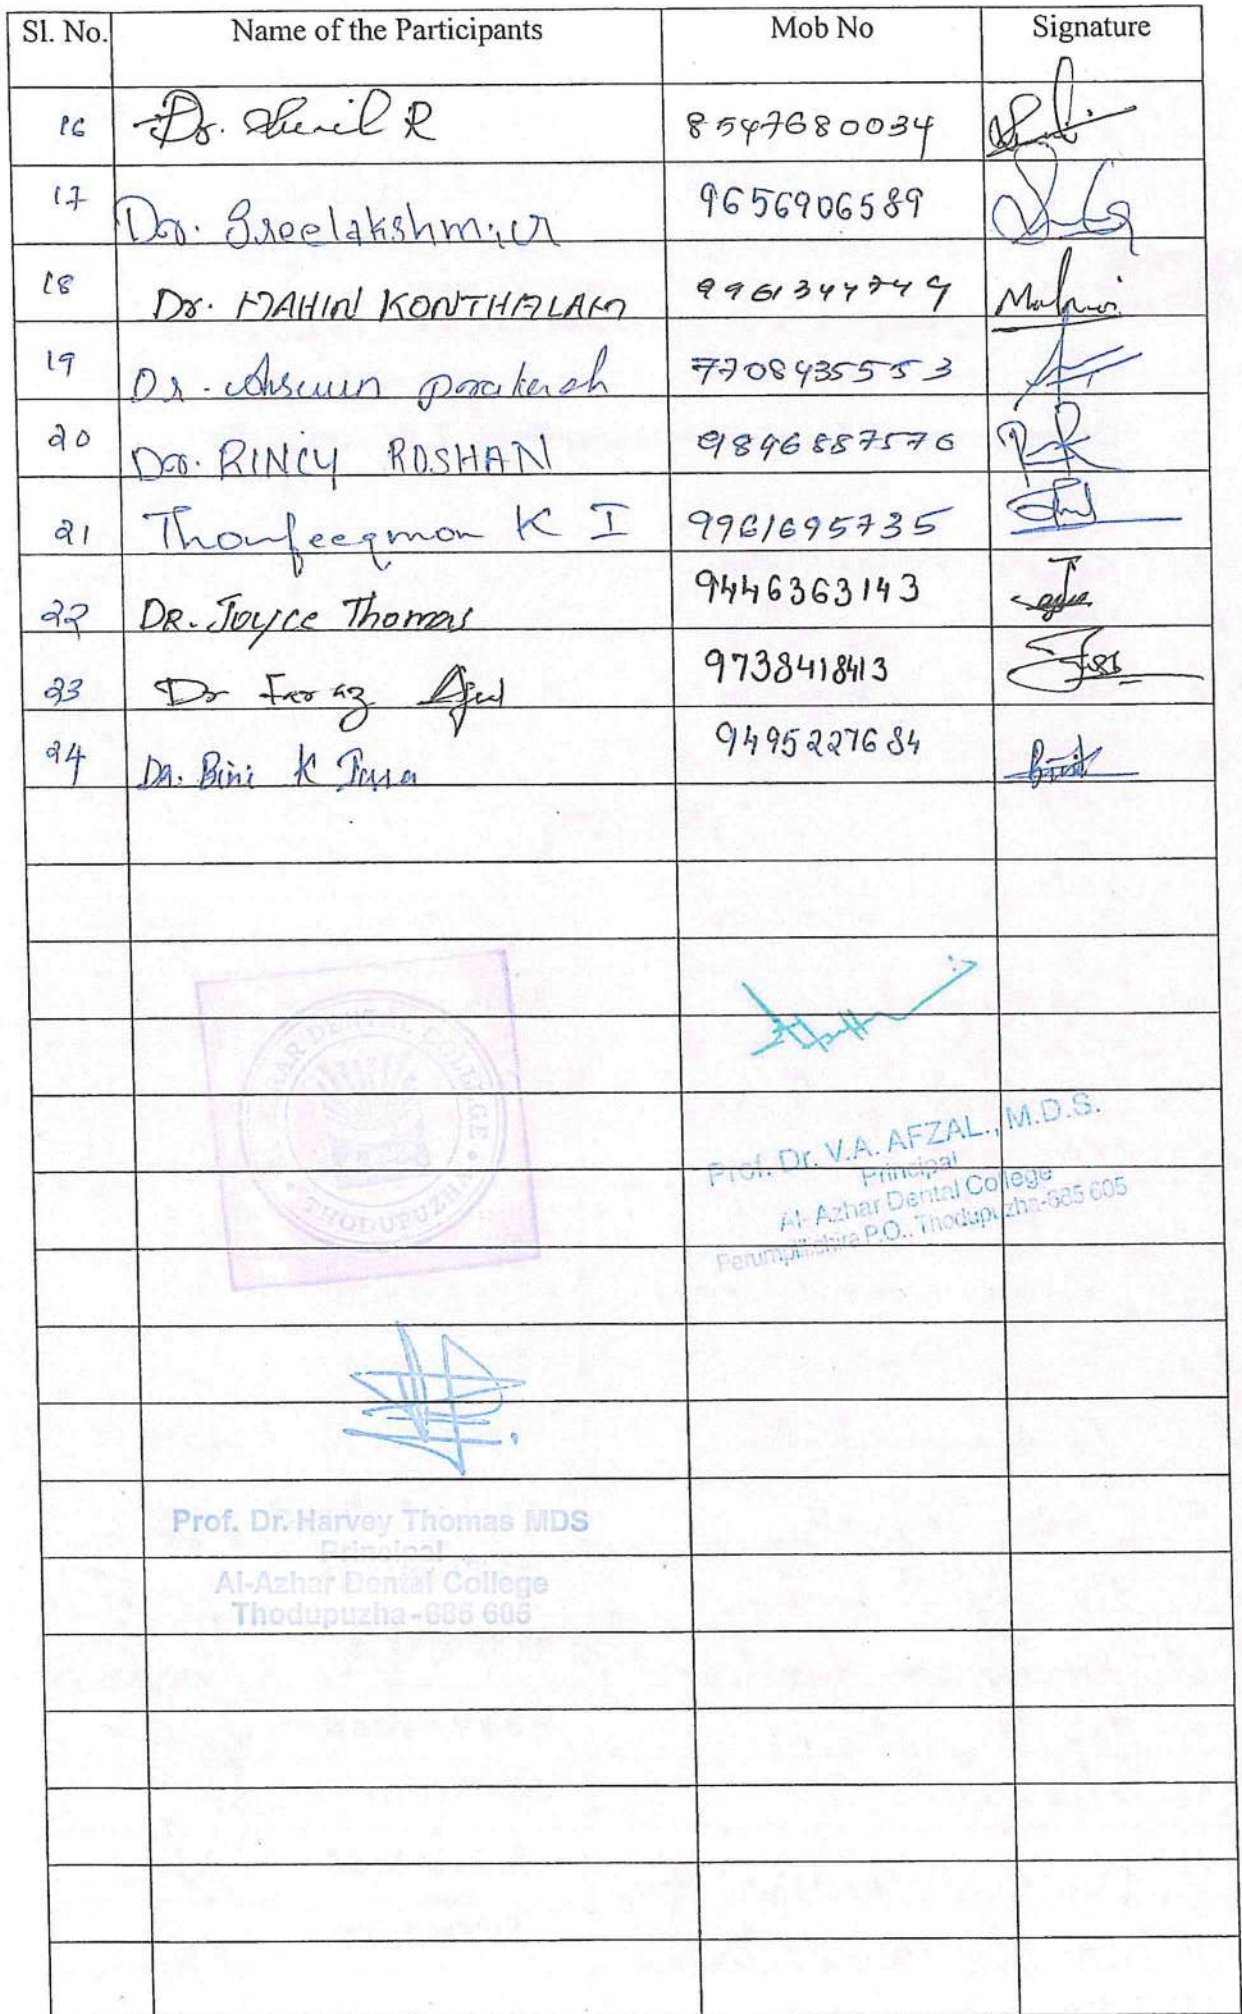 Sl. No. Name of the Participants Mob No Signature
16 Dr. Sunil R 8547680034
17 Dr. Sreelakshmi 9656906589
18 Dr. MAHIN KONTHALAM 9961344749
19 Dr. Aswin prakash 7708435553
20 Dr. RINCY ROSHAN 9846887576
21 Thoufeeqmon K I 9961695735
22 DR. Joyce Thomas 9446363143
23 Dr Faraz 9738418413
24 Dr. Bini K 9495227684
AZHAR DENTAL COLLEGE
THODUPUZHA
Prof. Dr. V.A. AFZAL., M.D.S.
Principal
Al-Azhar Dental College
Perumpillichira P.O., Thodupuzha-685 605
Prof. Dr. Harvey Thomas MDS
Principal
Al-Azhar Dental College
Thodupuzha-685 605